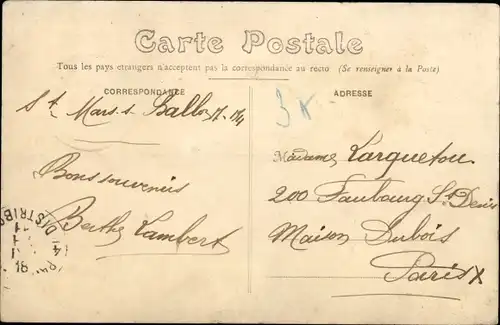 Carte Postale
Tous les pays etrangers n'acceptent pas la correspondance au recto (Se renseigner à la Poste)
CORRESPONDANCE
ADRESSE
St Mars-s-Ballon
3 K
Bons souvenirs
Berthe Lambert
Madame Larguetou
200 Faubourg St Denis
Maison Dubois
Paris X
DISTRIB